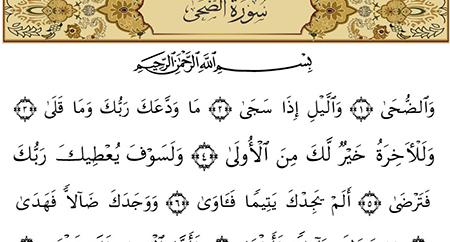 سُورَةُ الضُّحَى
بِسْمِ اللَّهِ الرَّحْمَٰنِ الرَّحِيمِ
وَالضُّحَىٰ ﴿١﴾ وَالَّيْلِ إِذَا سَجَىٰ ﴿٢﴾ مَا وَدَّعَكَ رَبُّكَ وَمَا قَلَىٰ ﴿٣﴾
وَلَلْأَخِرَةُ خَيْرٌ لَّكَ مِنَ الْأُولَىٰ ﴿٤﴾ وَلَسَوْفَ يُعْطِيكَ رَبُّكَ
فَتَرْضَىٰ ﴿٥﴾ أَلَمْ يَجِدْكَ يَتِيمًا فَـَٔاوَىٰ ﴿٦﴾ وَوَجَدَكَ ضَآلًّا فَهَدَىٰ